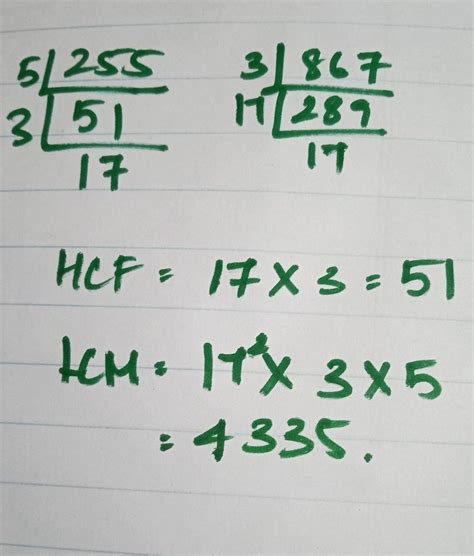 5 255
3 51
17
3 867
17 289
17
HCF = 17 × 3 = 51
LCM = 17² × 3 × 5
= 4335.